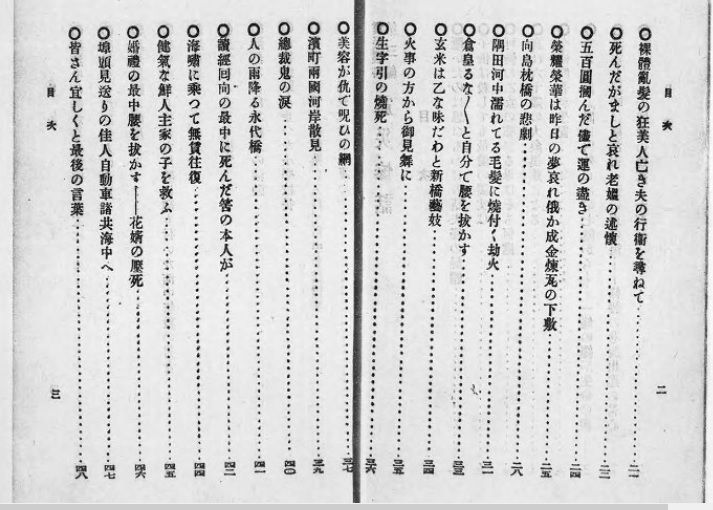 目次
○裸體亂髮の狂美人亡き夫の行衞を尋ねて……二一
○死んだがましと哀れ老媼の述懷……二三
○五百圓摑んだ儘で運の盡き……二四
○榮耀榮華は昨日の夢哀れ俄か成金煉瓦の下敷……二五
○向島枕橋の悲劇……二八
○隅田河中濡れてる毛髮に燒付く劫火……三一
○倉皇るな〳〵と自分で腰を拔かす……三三
○玄米は乙な味だわと新橋藝妓……三四
○火事の方から御見舞に……三五
○生字引の燒死……三六
二
○美容が仇で呪ひの網……三七
○濱町兩國河岸散見……三九
○總裁鬼の淚……四〇
○人の雨降る永代橋……四一
○讀經回向の最中に死んだ筈の本人が……四二
○海嘯に乘つて無賃往復……四四
○健氣な鮮人主家の子を救ふ……四五
○婚禮の最中腰を拔かす——花婿の壓死……四六
○埠頭見送りの佳人自動車諸共海中へ……四七
○皆さん宜しくと最後の言葉……四八
目次
三